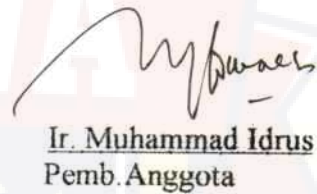 Ir. Muhammad Idrus
Pemb.Anggota